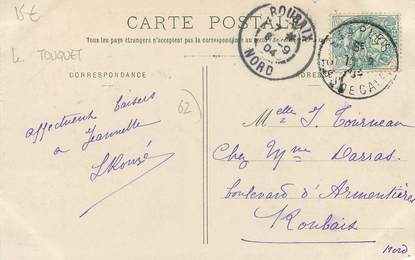 15€
Le TOUQUET
CARTE POSTALE
Tous les pays étrangers n'acceptent pas la correspondance au recto
CORRESPONDANCE
62
affectueux baisers
a Jeannette
ROUBAIX
04
NORD
PARIS
DE CALAIS
Melle J. Tourneau
Chez Mme Darras.
boulevard d'Armentières
Roubaix
Nord.